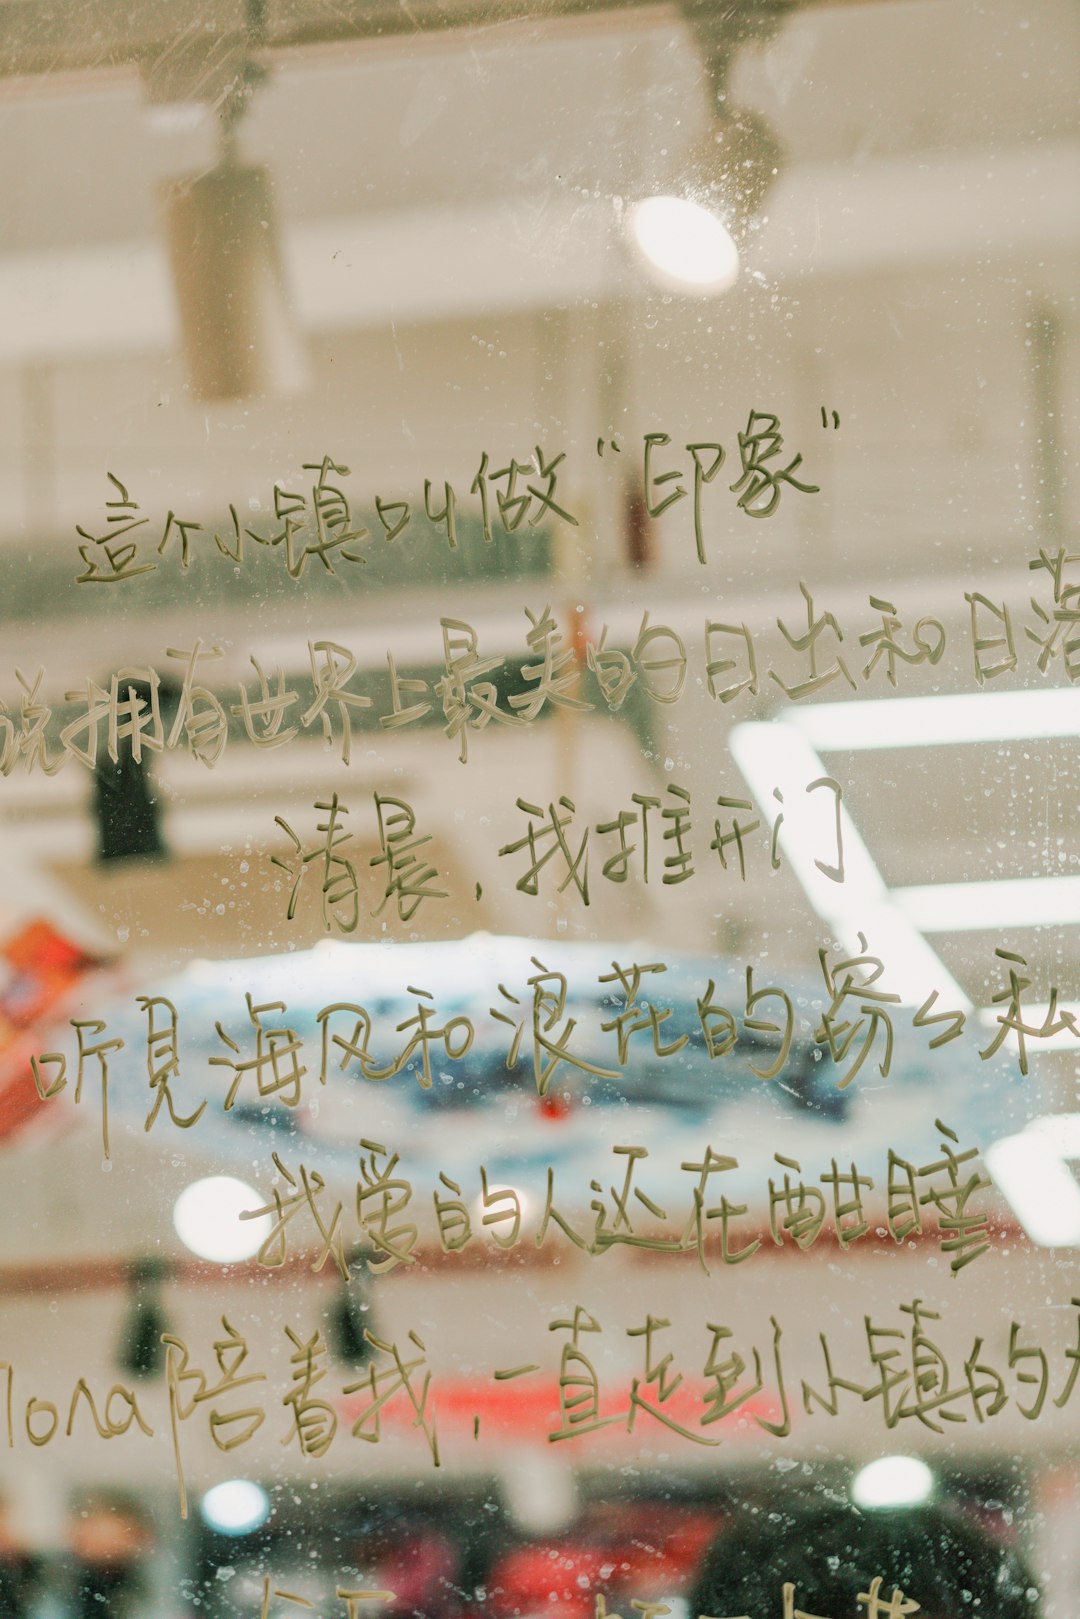 這个小镇叫做“印象”
说拥有世界上最美的日出和日落
清晨，我推开门
听見海风和浪花的窃々私
我爱的人还在酣睡
lona陪着我，一直走到小镇的